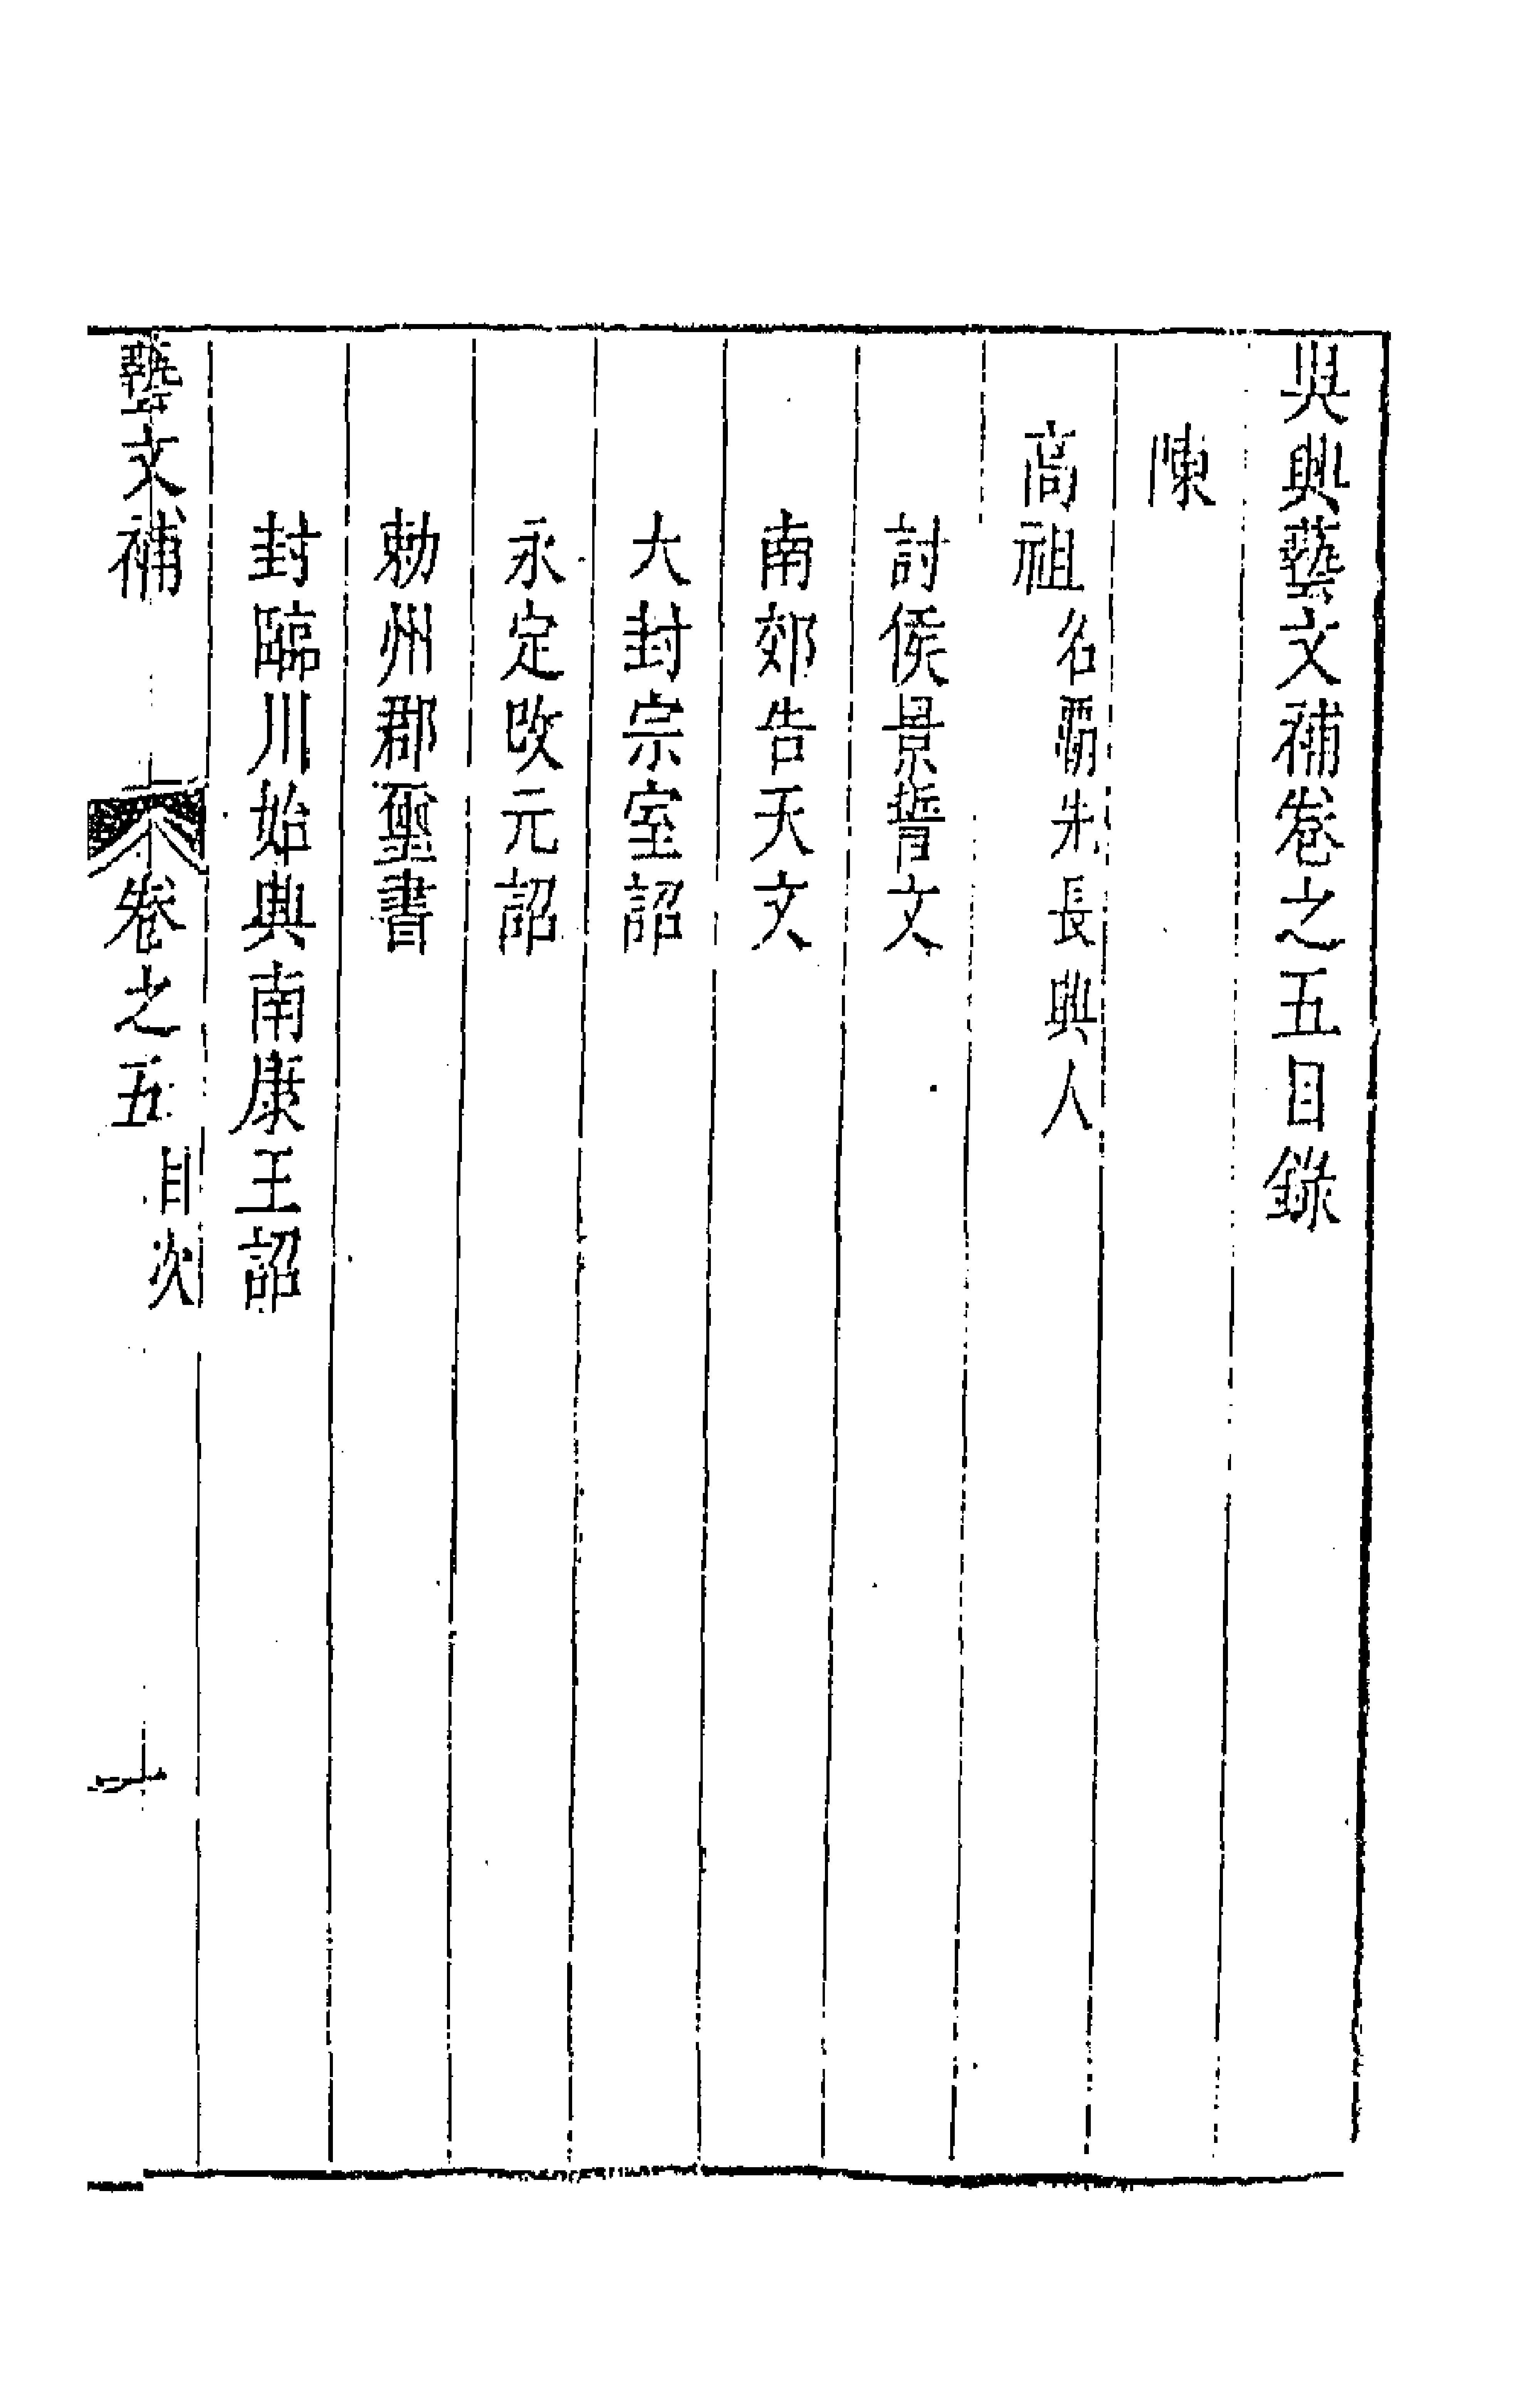 吳興藝文補卷之五目錄
陳
高祖名霸先長興人
討侯景誓文
南郊告天文
大封宗室詔
永定改元詔
勅州郡璽書
封臨川始興南康王詔
藝文補 卷之五 目次 一